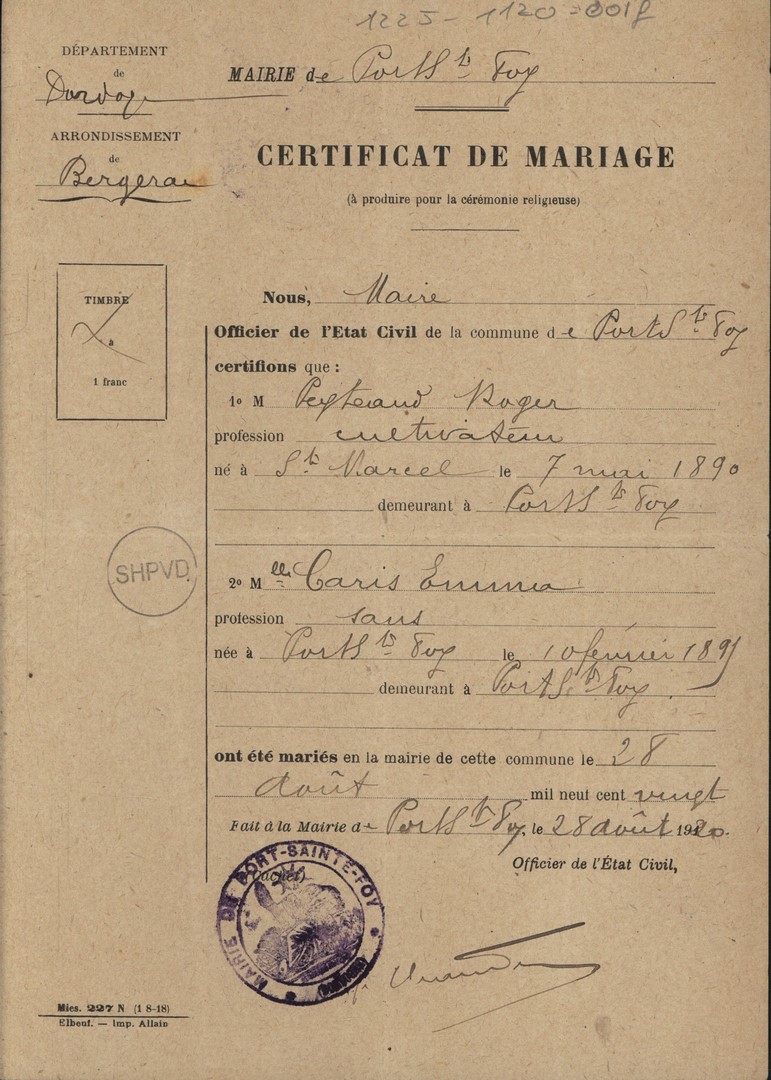 1225 - 1120 = 0018
DÉPARTEMENT
de
Dordogne
MAIRIE de Port Ste Foy
ARRONDISSEMENT
de
Bergerac
CERTIFICAT DE MARIAGE
(à produire pour la cérémonie religieuse)
TIMBRE
à
1 franc
Nous, Maire
Officier de l'Etat Civil de la commune de Port Ste Foy
certifions que :
1º M Peyteaud Roger
profession cultivateur
né à St Marcel le 7 mai 1890
demeurant à Port Ste Foy
SHPVD
2º Melle Caris Emma
profession sans
née à Port Ste Foy le 10 février 1895
demeurant à Port Ste Foy.
ont été mariés en la mairie de cette commune le 28
août mil neuf cent vingt
Fait à la Mairie de Port Ste Foy, le 28 août 1920.
Officier de l'État Civil,
(Cachet)
MAIRIE DE PORT-SAINTE-FOY
(Dordogne)
Mies. 227 N (1 8-18)
Elbeuf. — Imp. Allain